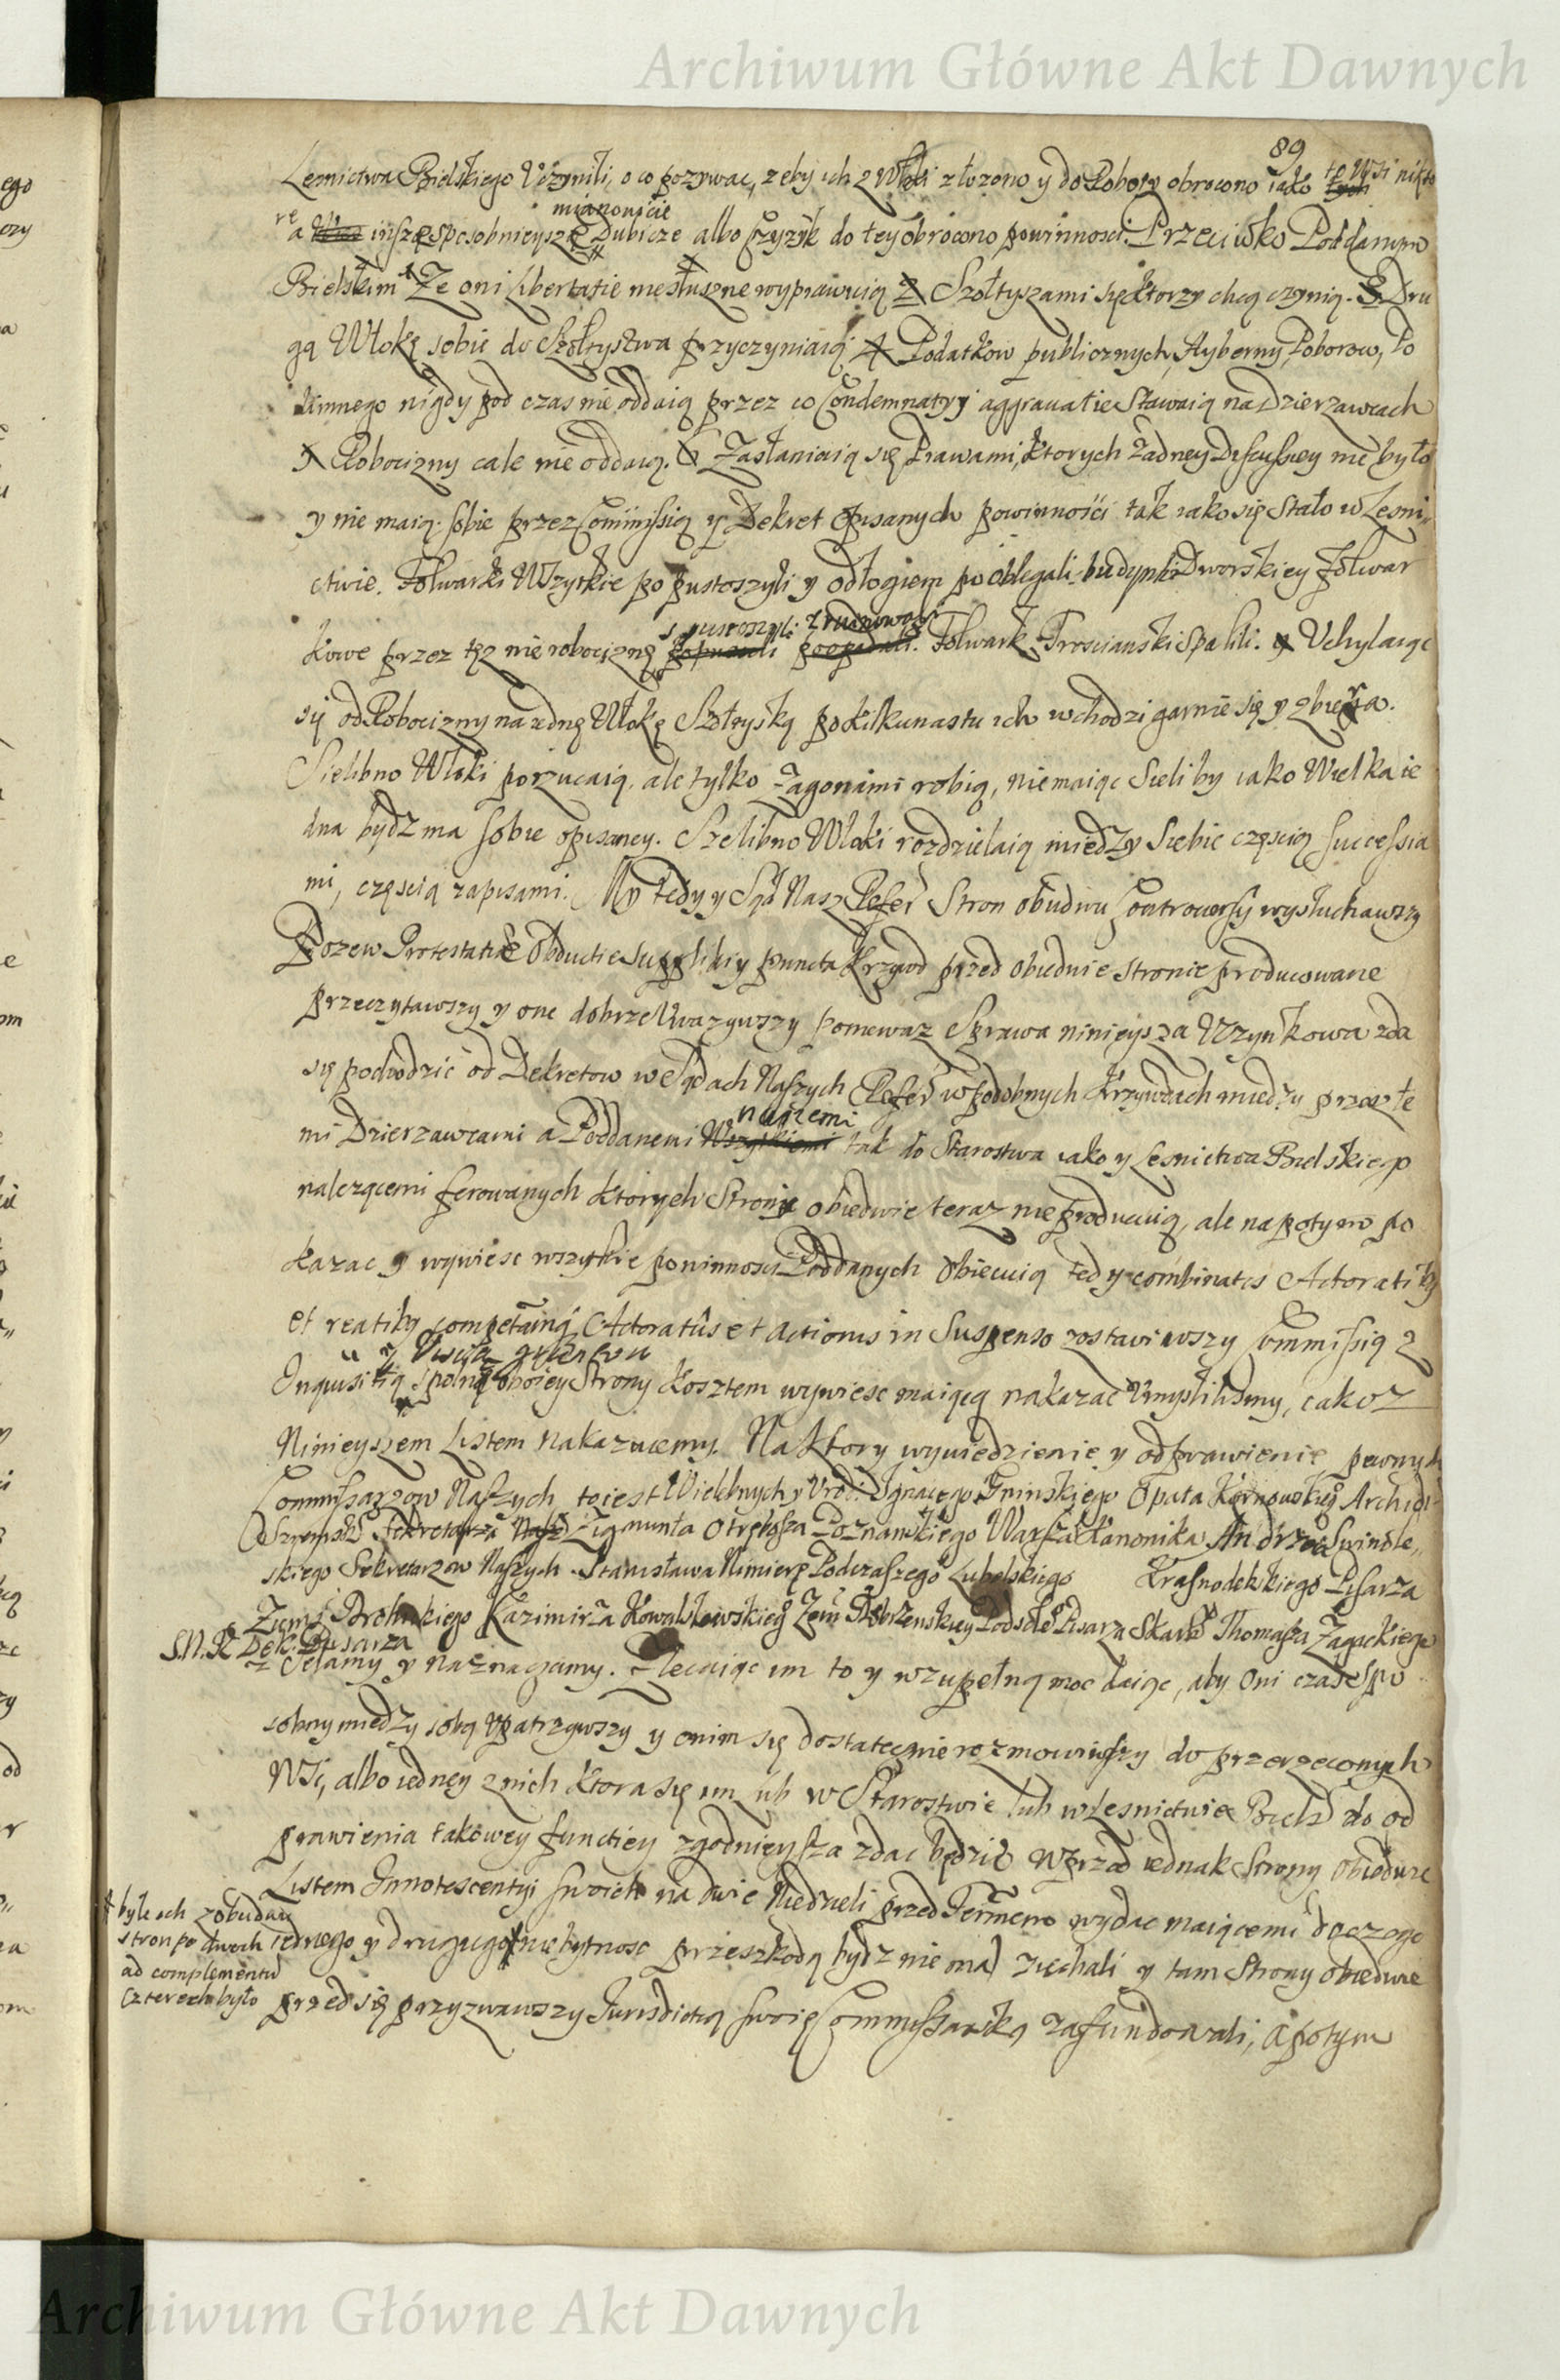 Archiwum Główne Akt Dawnych
89
Lesnictwa Bielskiego Uczynili, o co pozywac, zeby ich z Włok złozono y do Roboty obrocono iako te Wsi niekto
re
mianowicie
a insze sposobnieysze Dubicze albo Czyzyk do tey obrocono powinnosci. Przeciwko Poddanym
Bielskim 1 Ze oni Libertatie niesłuszne wyprawuią 2 Szołtyszami się ktorzy chcą czynią. 3. Dru
gą Włokę sobie do Szołtystwa przyczyniaią 4 Podatkow publicznych, Hyberny, Poborow, Po
dymnego nigdy pod czas nie oddaią przez co Condemnaty y aggrauatie Stawaią na Dzierzawcach
5 Robocizny cale nie oddaią. 6 Zasłaniaią się Prawami, ktorych zadney Discussiey nie było
y nie maią sobie przez Commissią y Dekret Opisanych powinnosci tak iako się Stało w Lesni„
ctwie. Folwarki Wszytkie po pustoszyli y odłogiem po oblegali budynki Dworskiey folwar
spustoszyli zruinowali
kowe przez tęz nie robociznę Folwark Trosciański spalili. Uchylaiąc
się od Robocizny na iednę Włokę Szołtyską po kilkunastu ich wchodzi garnie się y zbiera.
Sielibno Włoki porzucaią, ale tylko Zagonami robią, nie maiąc Sieliby iako Wielka ie
dna bydz ma sobie opisaney. Szelibno Włoki rozdzielaią między Siebie częscią successia
mi, częscią zapisami. My tedy y Sąd Nasz Refer Stron obudwu Controuersiy wysłuchawszy
Pozew Protestatie Obductie Suppliki y puncta Krzywd przed obiedwie stronie producowane
przeczytawszy y one dobrze Uwazywszy poniewaz Sprawa ninieysza Uczynkowa zda
się pochodzic od Dekretow w Sądach Naszych Refer w podobnych Krzywdach między przeszłe
naszemi
mi Dzierzawcami a Poddanemi Wszytkiemi tak do Starostwa iako y Lesnictwa Bielskiego
nalezącemi ferowanych ktorych Strony obiedwie teraz nie producuią, ale na potym po
kazac y wywiesc wszytkie powinnosci Poddanych obiecuią tedy combinatis Actoratiby
et reatiby competaing Actoratus et actionis in Suspenso zostawiwszy Commissią z
Inquisitią spolną oboiey Strony kosztem wywiesc maiącą nakazac Umyslilismy, iakoz
Ninieyszem Listem nakazuiemy. Na ktory wywiedzienie y odprawienie pewnych
Commissarzow Naszych to iest Wielebnych y Urodz: Ignacego Gninskiego Opata
Sekretarza Zigmunta Poznanskiego Warsz: Kanonika
skiego Sekretarzow Naszych Stanisława Niemierę Podczaszego Lubelskiego Krasnodebskiego Pisarza
Ziems: Kazimirza Pisarza Skarb: Thomasza
S.N.R. Dek: Pisarza
Zsełamy y naznaczamy. Zlecaiąc im to y w zupełną moc daiąc, aby oni czas spo
sobny między sobą upatrzywszy y o nim się dostatecznie rozmowiwszy do przerzeconych
Wsi, albo iedney z nich ktora się im lub w Starostwie lub w Lesnictwie Biels: do od
prawienia takowey functiey zgodnieysza zdac będzie wprzod iednak Strony Obiedwie
Listem Innotescentyi swoich na dwie Niedzieli przed Termenem wydac maiącemi do czego
byle ich z obudwu
stron po dwoch
iednego y drugiego niebytnosc przeszkodą bydz nie ma) ziechali y tam Strony obiedwie
ad complementu
czterech było
przed się przyzwawszy Iurisdictią swoię Commissarską zafundowali, a potym
Archiwum Główne Akt Dawnych